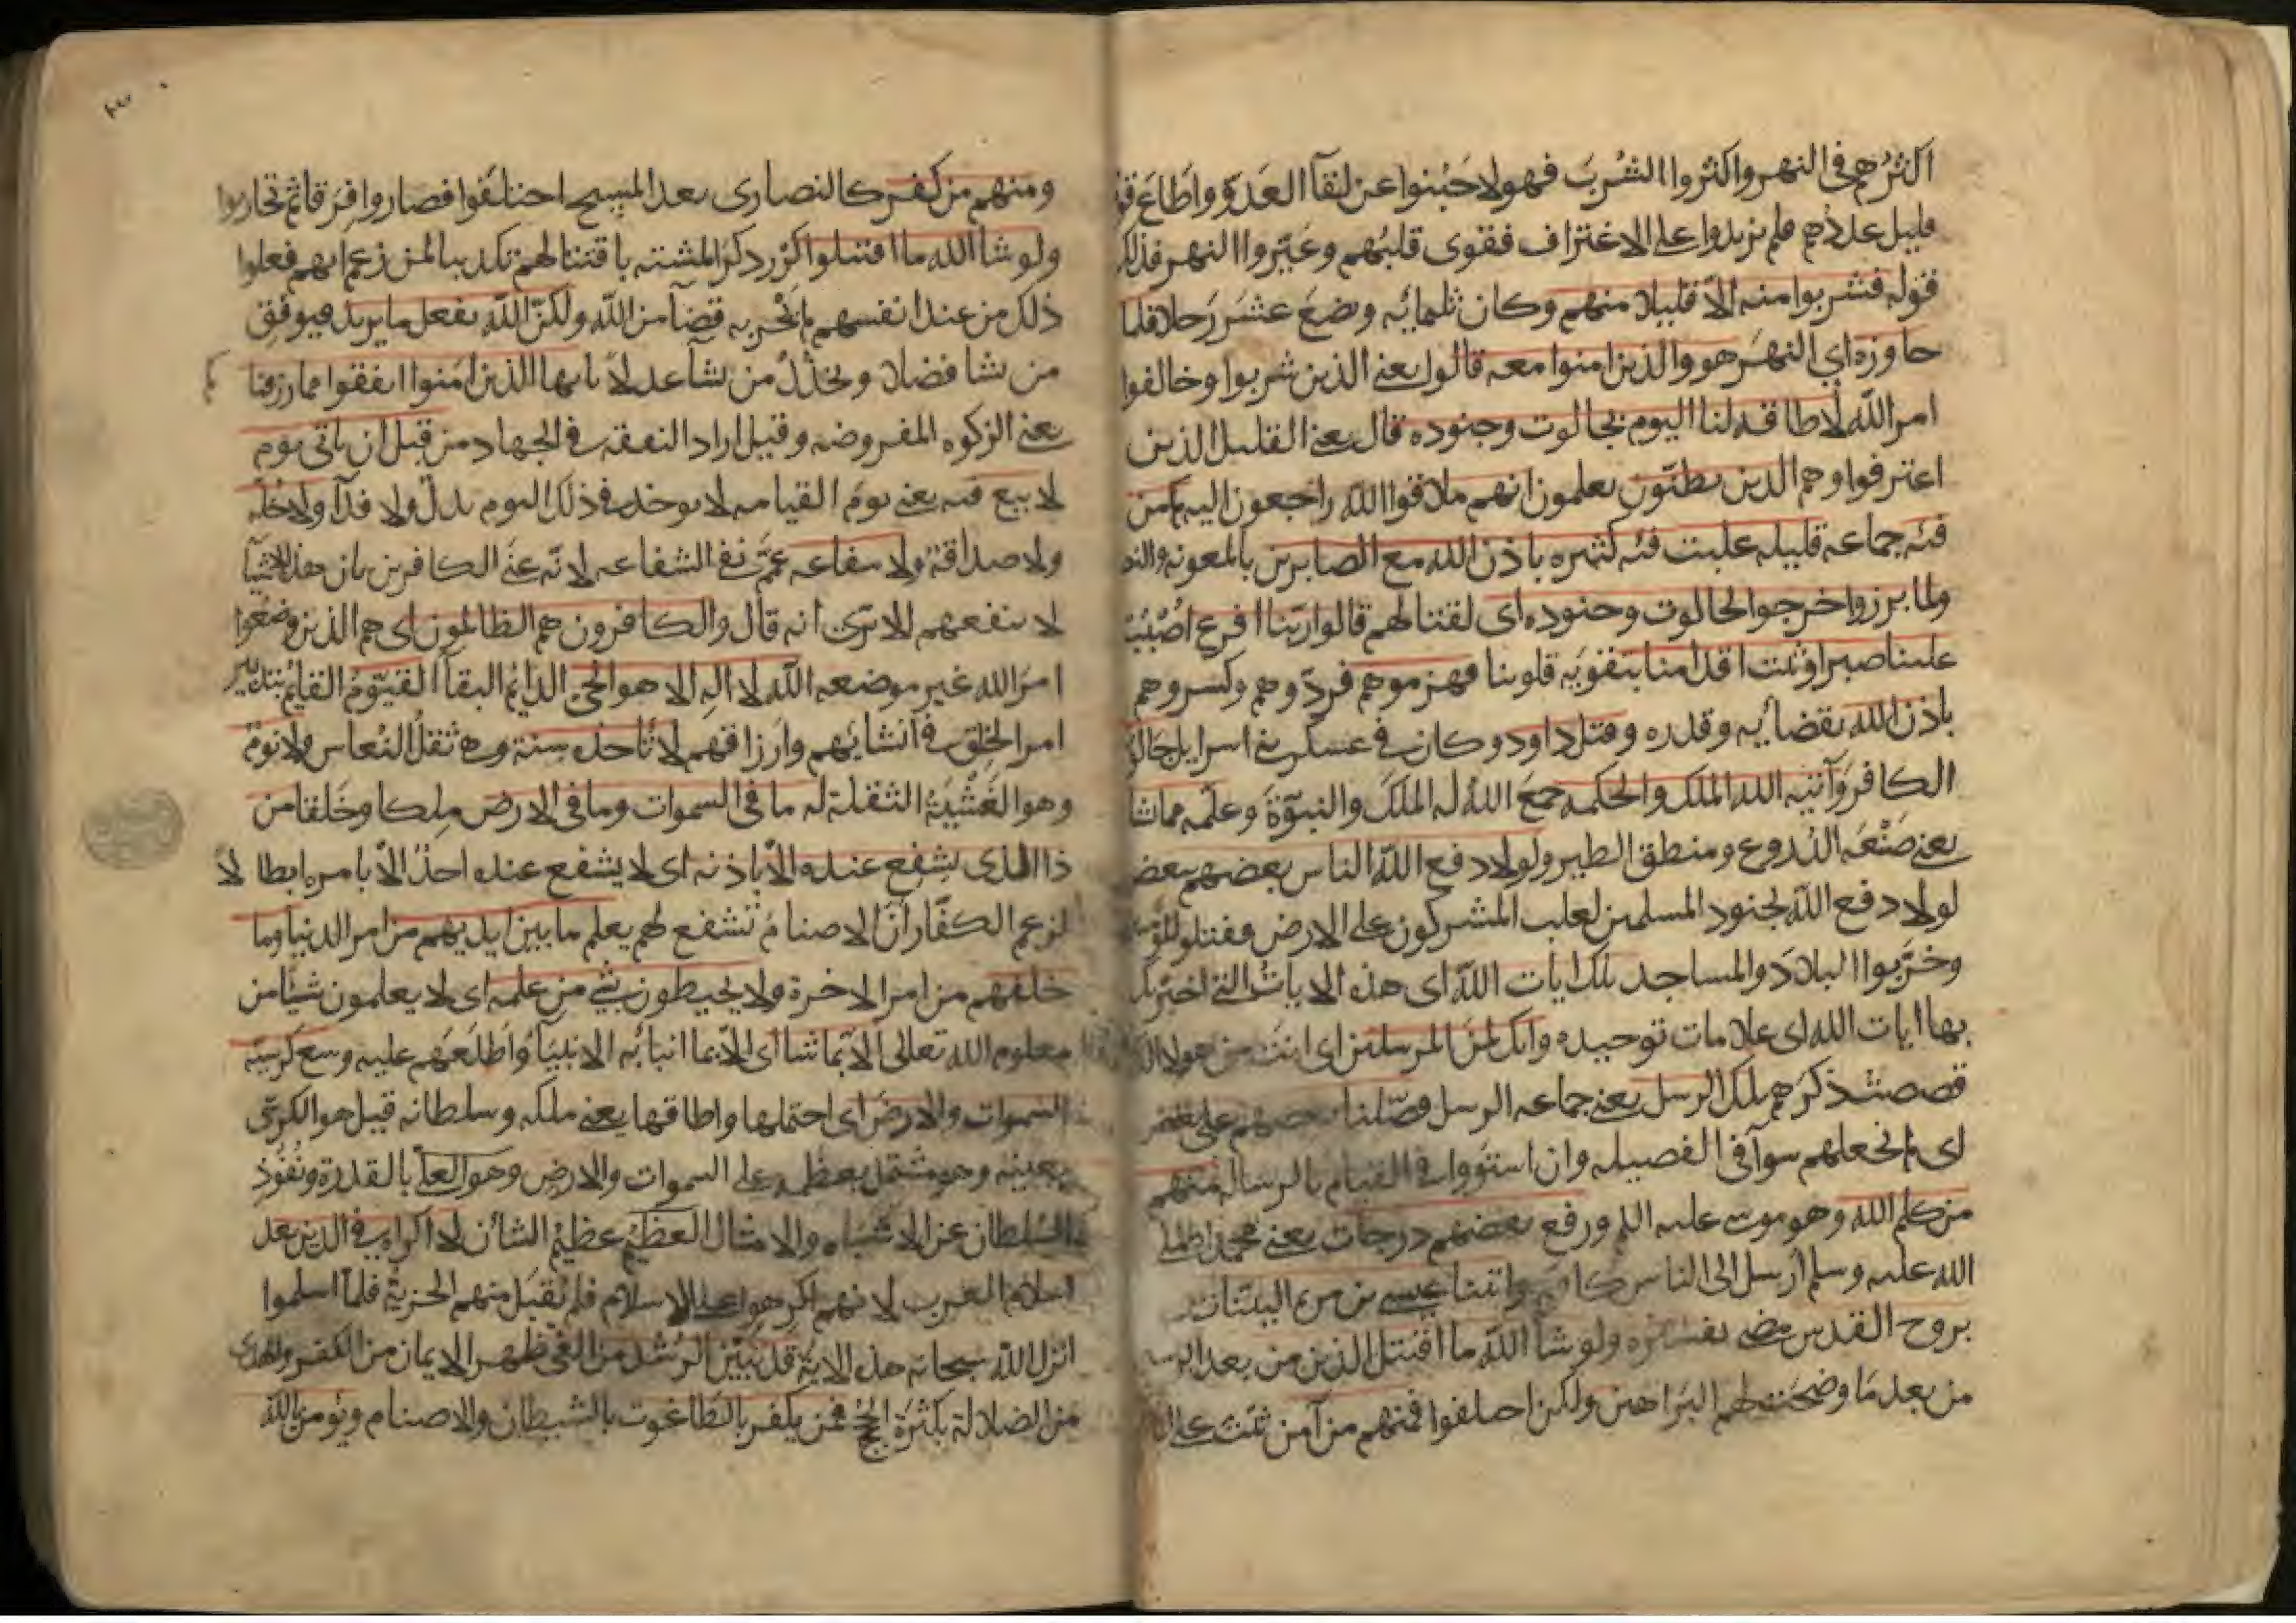 اكثرهم في النهر واكثروا الشُربَ فهولا جَبُنوا عن لقآ العَدوّ واطَاعَ قوم
قليل عددهم فلم يزيدوا على الاغتراف فقوى قلبُهم وعَبَروا النهر فذلك
قوله فشربوا منه الّا قليلا منهم وكان ثلمائه وبضعَ عشَرَ رَجلا فلما
جاوزه اي النهَر هو والذين امنوا معه قالوا يعني الذين شربوا وخالفوا
امر اللّه لا طاقه لنا اليوم بجالوت وجنوده قال يعني القليل الذين
اغترفوا وهم الذين يظنّون يعلمون انهم ملاقوا اللّه راجعون اليه كم من
فئه جماعه قليله غلبت فئه كثيره باذن اللّه مع الصابرين بالمعونه والنصر
ولما برزوا خرجوا لجالوت وجنوده اى لقتالهم قالوا ربّنا افرغ اصْبُبْ
علينا صبرا وثبت اقدامنا بتقويه قلوبنا فهزموهم فردّوهم وكسروهم
باذن اللّه بقضائه وقدره وقتل داود وكان في عسكر بني اسرايل جالوت
الكافر وَآتيه اللّه الملك والحكمه جمعَ اللّهُ له الملكَ والنبوّة وَعلّمه مما يشا
يعني صَنْعَه الدُروع ومنطق الطير ولولا دفع اللّه الناس بعضهم ببعض
لولا دفع اللّه بجنود المسلمين لغلب المشركون على الارض فقتلوا المؤمنين
وخرّبوا البلادَ والمساجد تلك ايات اللّه اى هذه الايات التي اخبرتك
بها ايات اللّه اى علامات توحيده وانك لمن المرسلين اى انت من هولا الذين
قصصت ذكرَهم تلك الرسل يعني جماعه الرسل فضّلنا بعضهم على بعض
اى لم نجعلهم سوآ في الفضيله وان استَووا في القيام بالرساله منهم
من كلم اللّه وهو موسى عليه السلم ورفع بعضهم درجات يعني محمدا صلى
اللّه عليه وسلم ارسل الى الناس كافه واتينا عيسى بن مريم البينات
بروح القدس مضى تفسيره ولو شا اللّه ما اقتتل الذين من بعد الرسل
من بعد مَا وضحَت لهم البَراهين ولكن اختلفوا فمنهم من آمن ثبت على
ومنهم من كفر كالنصارى بعد المسيح اختلفوا فصاروا فِرَقا ثم تحاربوا
ولو شا اللّه ما اقتتلوا كرّر ذكرَ المشئه باقتتالهم تكذيبا لمن زعم انهم فعلوا
ذلك من عند انفسهم لم يَجْر به قضآ من اللّه ولكنّ اللّه يفعل ما يريد فيوفّق
من يشا فضلا ويخذلُ من يشآ عدلا يا ايها الذين امنوا انفقوا مما رزقنا
يعني الزكوه المفروضه وقيل اراد النفقه في الجهاد من قبل ان ياتي يوم
لا بيع فيه يعني يومَ القيامه لا يوخذ في ذلك اليوم بدلٌ ولا فدآ ولا خُلّه
ولا صداقة ولا شفاعه عمَّ نفي الشفاعه لانّه عنَي الكافرين بان هذه الاشيآ
لا ينفعهم الا ترَى انه قال والكافرون هم الظالمون اى هم الذين وضَعوا
امرَ اللّه غير موضعه اللّه لا اله الا هو الحيّ الدائم البقآ القيّومُ القايم بتدبير
امر الخلق في انشائهم وارزاقهم لا تأخذه سِنة وهي ثقلُ النُعاس ولا نومٌ
وهو الغَشْيَةُ الثقيلة له ما في السموات وما في الارض مِلكا وخَلقا من
ذا الذى يشفع عنده الّا باذنه اى لا يشفع عنده احدٌ الّا بامره ابطالا
لزعم الكفّار انّ الاصنامَ تشفع لهم يعلم ما بين ايديهم من امر الدنيا وما
خلفهم من امر الاخرة ولا يحيطون بشيء من علمه اى لا يعلمون شيئا من
معلوم اللّه تعالى الّا بما شا اى الّا بما انبا به الانبيآ واطلعَهم عليه وسع كرسيّه
السموات والارض اى احتملها واطاقها يعني ملكه وسلطانه قيل هو الكرسّى
بعينه وهو مشتمل بعظمه على السموات والارض وهو العلّى بالقدرة ونُفُوذِ
السلطان عن الاشباه والامثال العظيم عظيمُ الشان لا اكراه في الدين بعد
اسلام العرب لانهم اكرهوا على الاسلام فلم تُقبَل منهم الجزيةُ فلمّا اسلموا
انزل اللّه سبحانه هذه الايةُ قد تبيّنَ الرُشد من الغي ظهر الايمان من الكفر والهدى
من الضلالة بكثرَة الحُجَج فمن يكفر بالطاغوت بالشيطان والاصنام ويؤمن باللّه